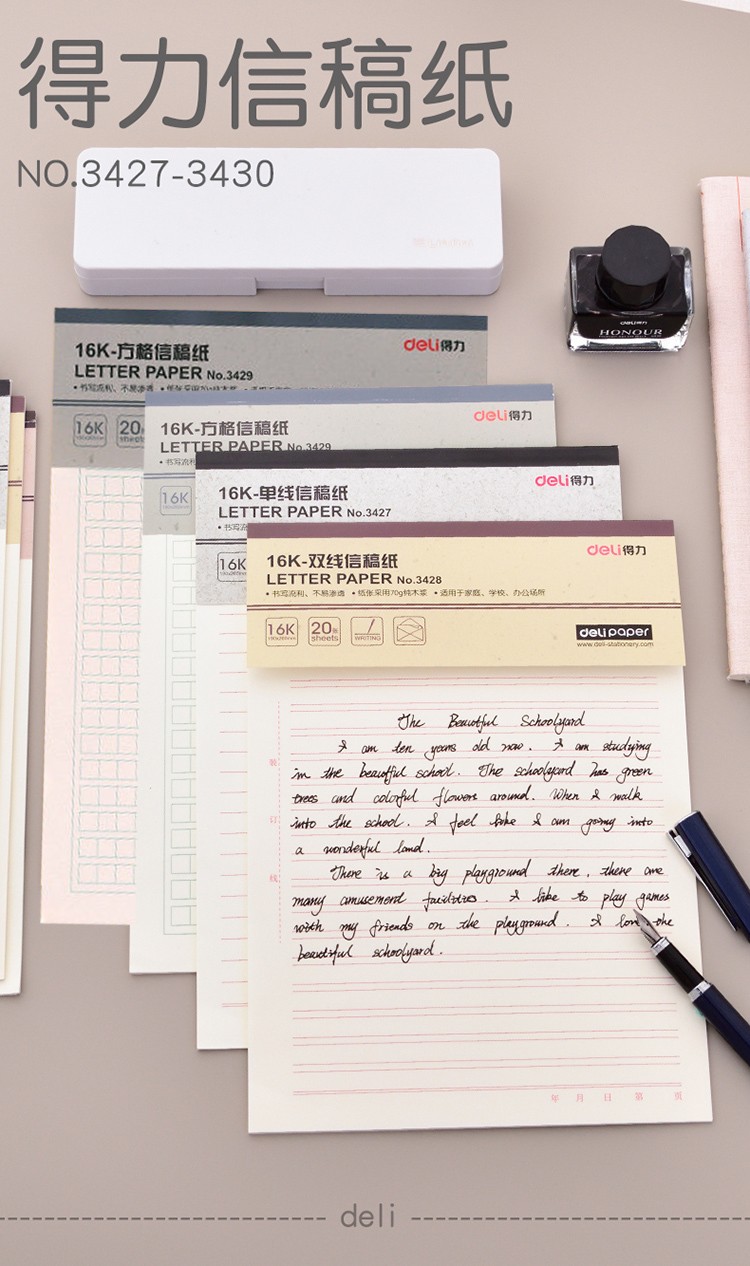 得力信稿纸
NO.3427-3430
deli得力
HONOUR
16K-方格信稿纸
deli得力
LETTER PAPER No.3429
• 书写流利、不易渗透 • 纸张采用70g纯木浆
16K
20张
sheets
16K-方格信稿纸
deli得力
LETTER PAPER No.3429
• 书写流利
16K
16K-单线信稿纸
deli得力
LETTER PAPER No.3427
• 书写流
16K
16K-双线信稿纸
deli得力
LETTER PAPER No.3428
• 书写流利、不易渗透 • 纸张采用70g纯木浆 • 适用于家庭、学校、办公场所
16K
20张
sheets
WRITING
deli paper
www.deli-stationery.com
The Beautful Schoolyard
I am ten years old now. I am studying
in the beautful school. The schoolyard has green
trees and colorful flowers around. When I walk
into the school. I feel like I am going into
a wonderful land.
There is a big playground there, there are
many amusement facilities. I like to play games
with my friends on the playground. I love the
beautiful schoolyard.
装
订
线
年 月 日 第 页
deli